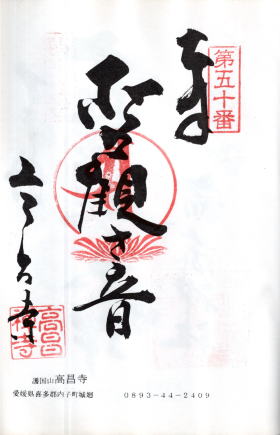 第五十番
奉
聖観世音
高昌寺
高昌
禅寺
護国山 高昌寺
愛媛県喜多郡内子町城廻 0893-44-2409